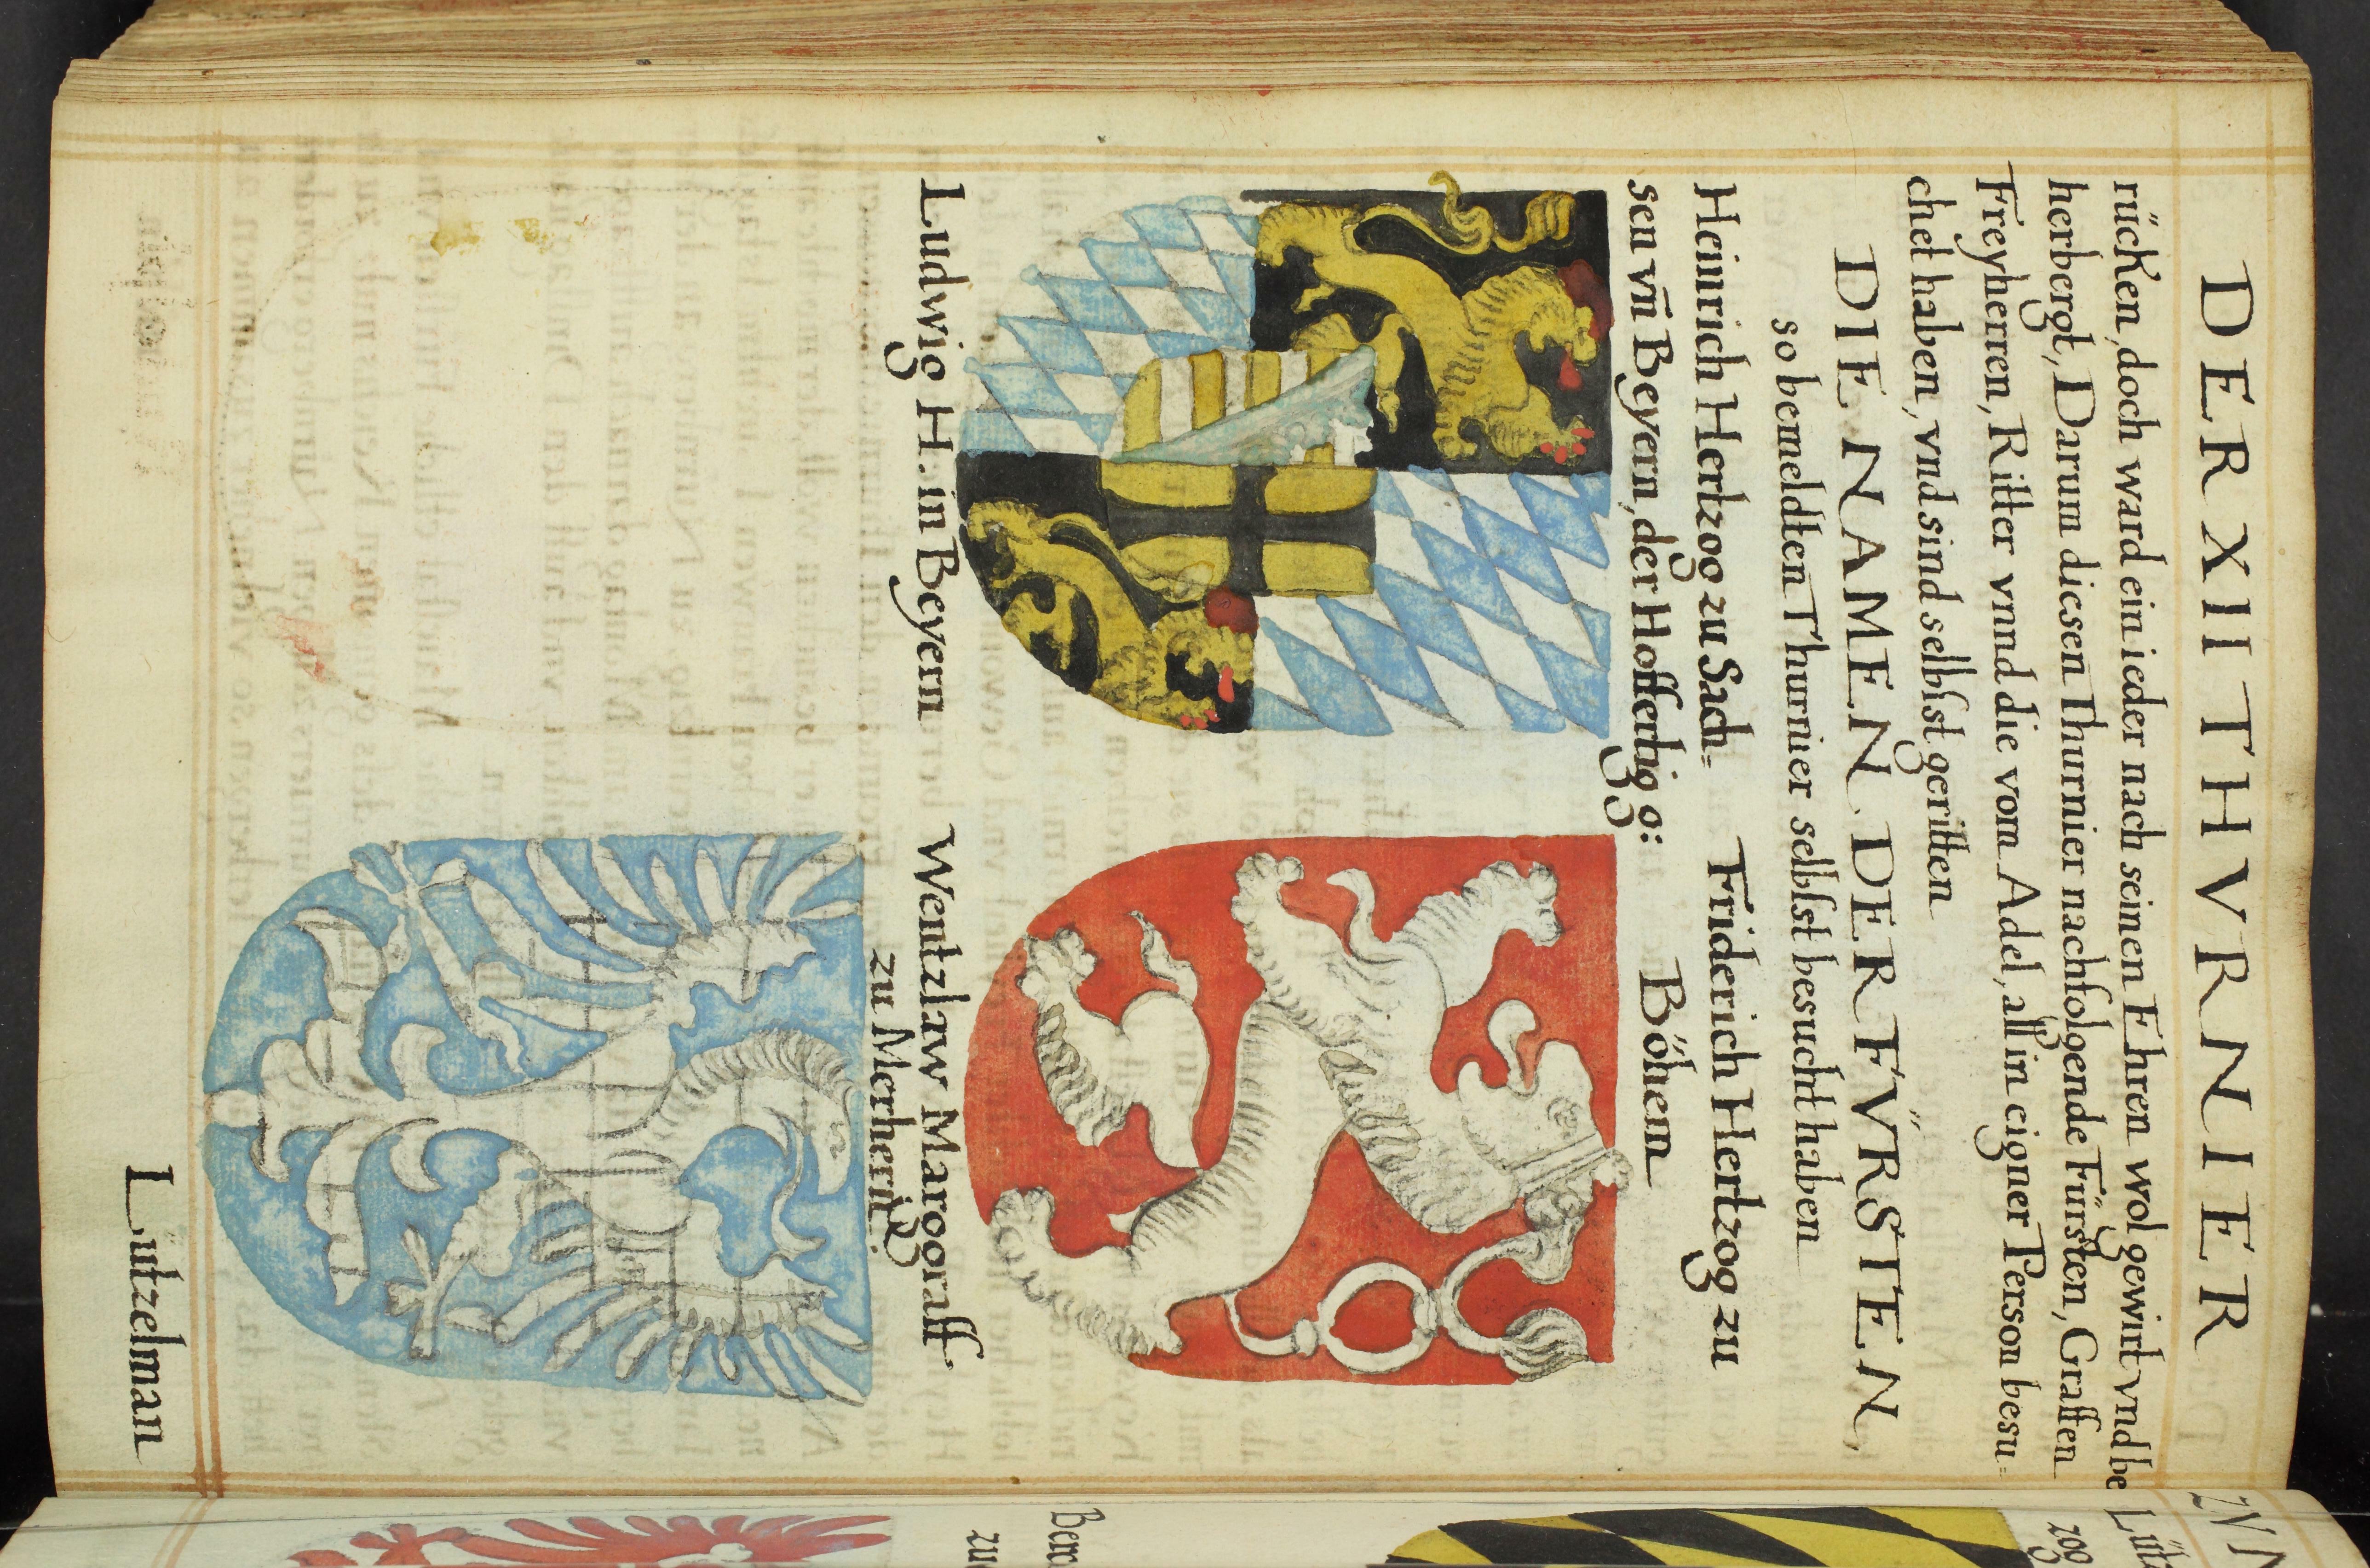 DER XII THVRNIER
rücken, doch ward ein ieder nach seinen Ehren wol gewirt vnd be
herbergt, Darum diesen Thurnier nachfolgende Fürsten, Graffen
Freyherren, Ritter vnnd die vom Adel, all in eigner Person besu=
chet haben, vnd sind selbst geritten
DIE NAMEN DER FÜRSTEN,
so bemeldten Thurnier selbst besucht haben
Heinrich Hertzog zu Sach=
sen vn̄ Beyern, der Hoffertig g:
Friderich Hertzog zu
Böhem
Ludwig H. in Beyern
Wentzlaw Marggraff
zu Merhern
Lützelman
Lütz
zog
zu